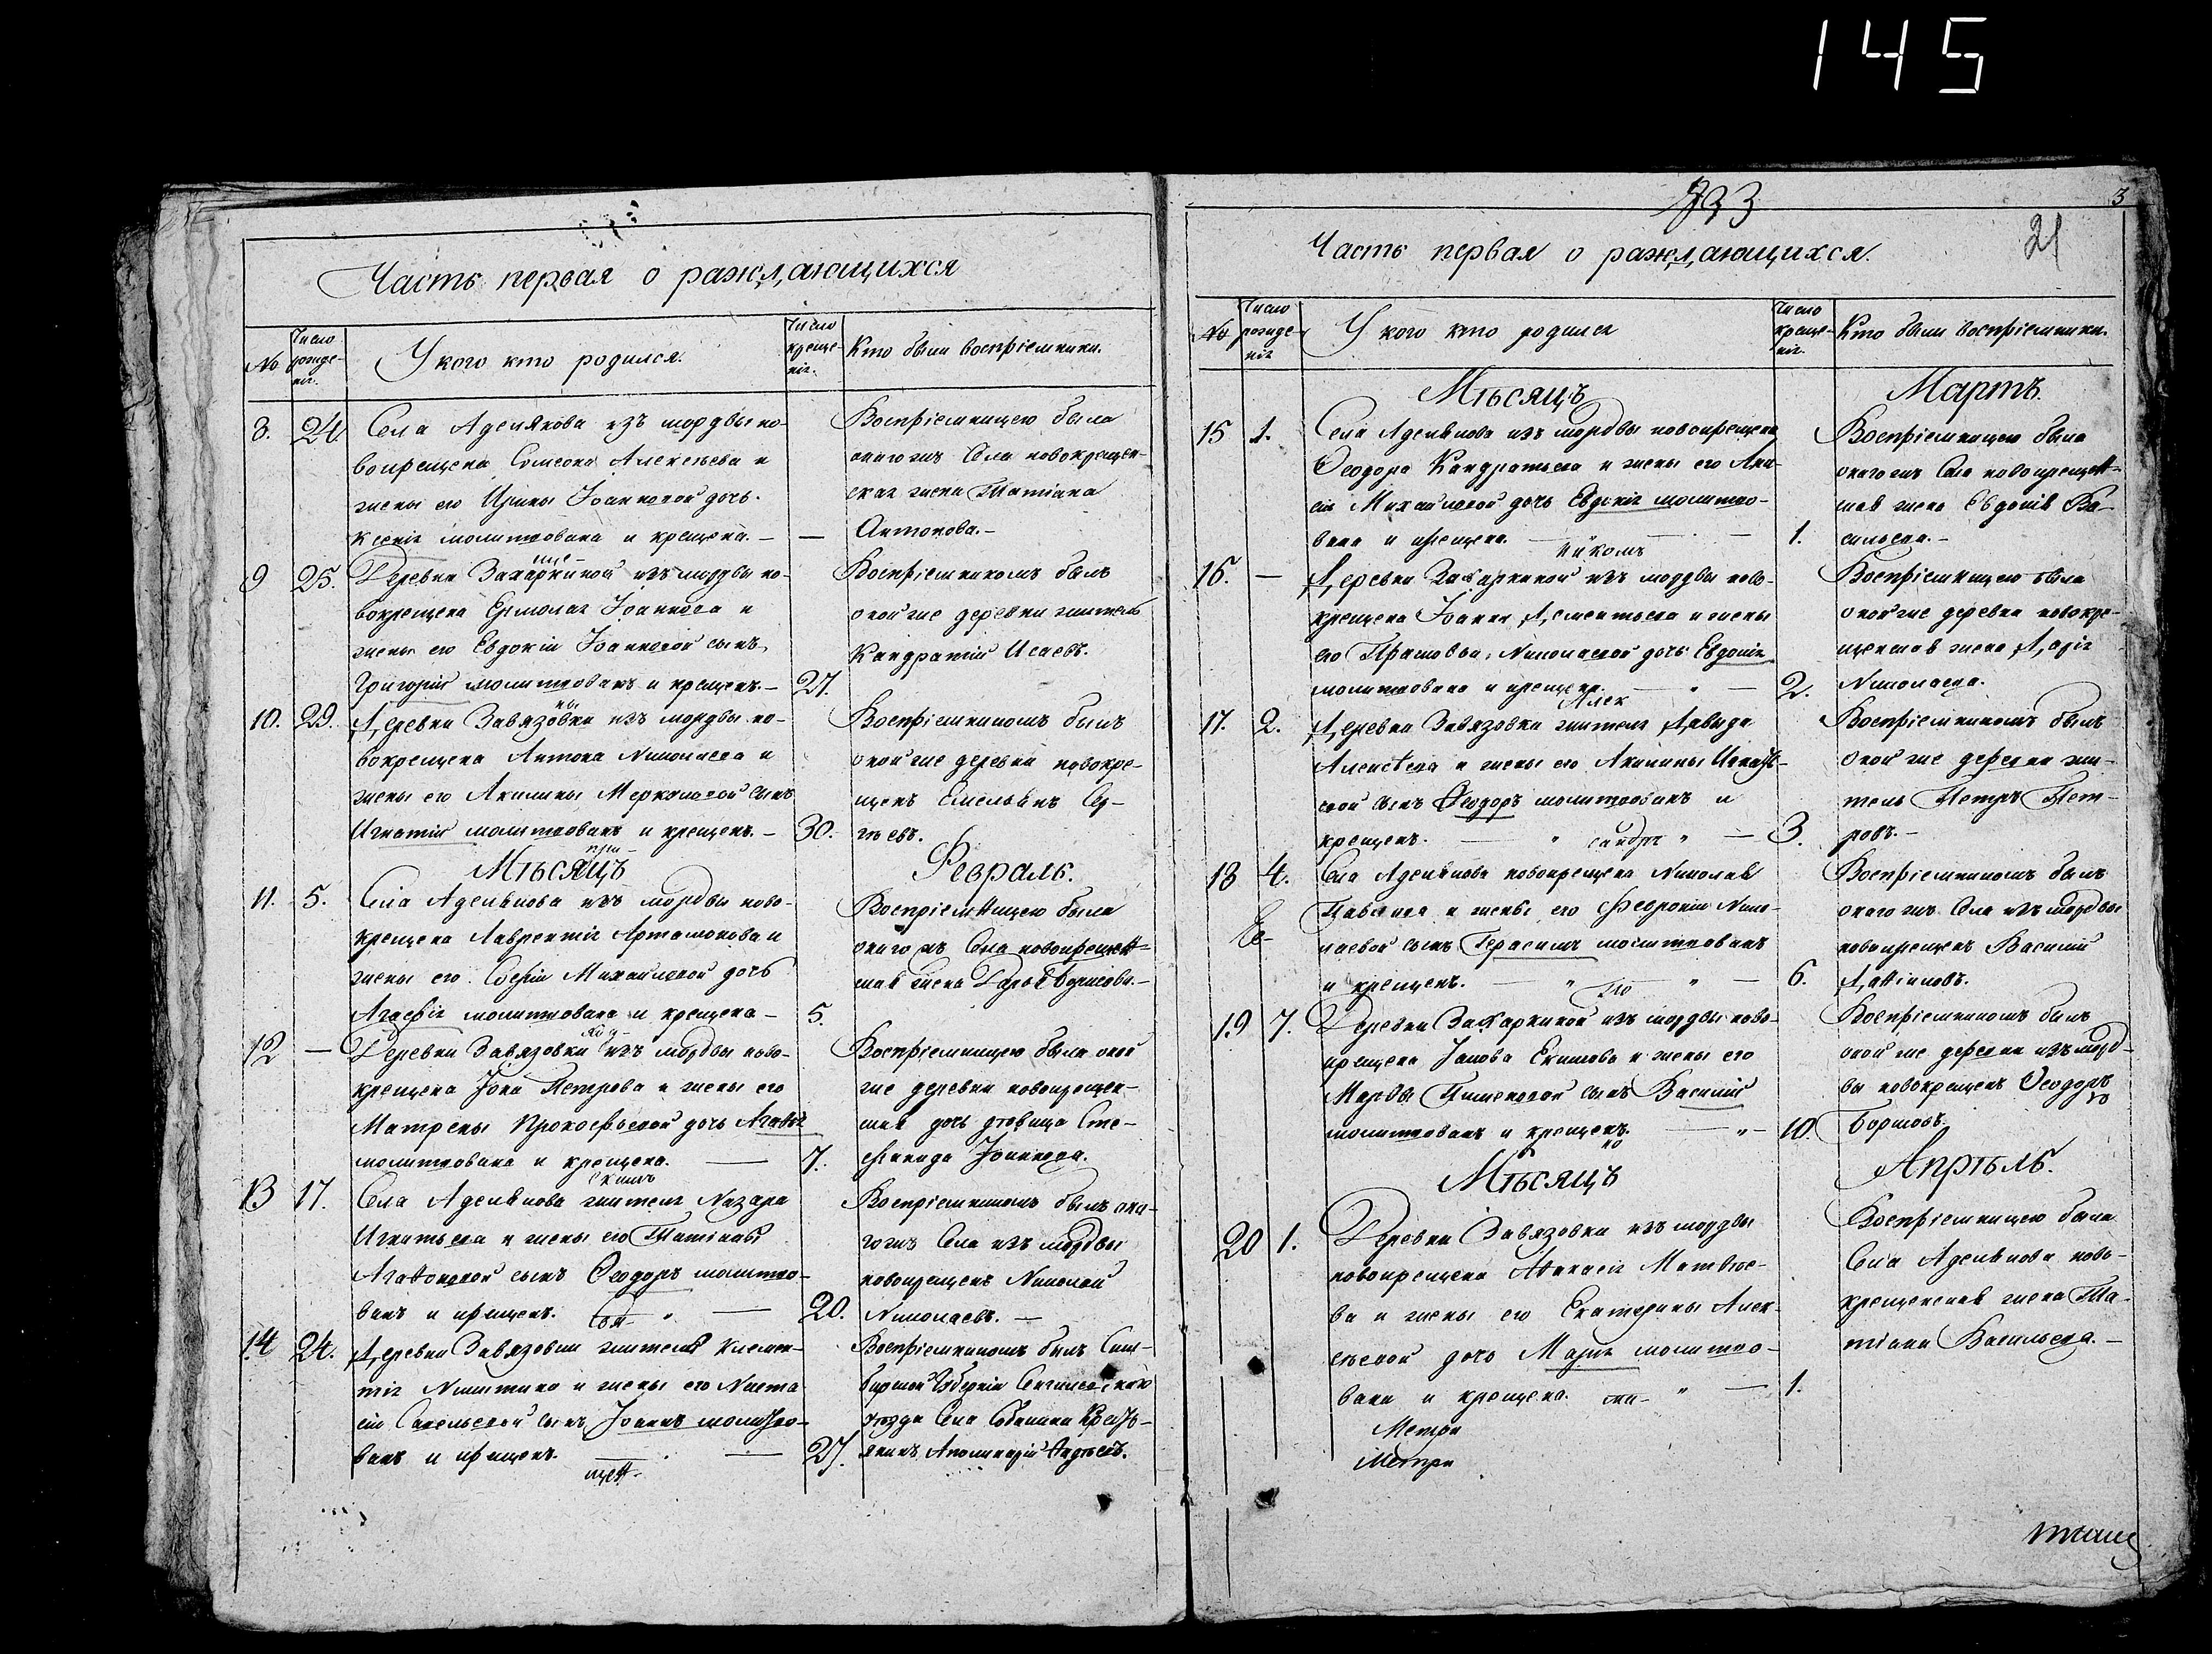 145
Часть первая о раждающихся
№
Число рожде-
нія.
У кого кто родился.
Число
креще-
нія.
Кто были воспріемники.
8. 24 Села Аделякова изъ мордвы но-
вокрещена Симеона Алексѣева и
жены его Ирины Іоанновой дочь
Ксенія молитвована и крещена. —
Воспріемницею была
онагожъ Села новокрещен-
ская жена Татіана
Антонова. —
9 25. Деревни Захаркиной изъ мордвы но-
вокрещена Ермолая Іоаннова и
жены его Евдокіи Іоанновой сынъ
Григорій молитвованъ и крещенъ. — 27.
Воспріемникомъ былъ
оной же деревни житель
Кандратій Исаевъ.
10. 29. Деревни Завязовки изъ мордвы но-
вокрещена Антона Николаева и
жены его Акилины Меркуловой сынъ
Игнатій молитвованъ и крещенъ. — 30.
Воспріемникомъ былъ
оной же деревни новокре-
щенъ Емельянъ Сер-
гѣевъ.
Мѣсяцъ Февраль.
11. 5. Села Аделякова изъ мордвы ново-
крещена Лаврентія Артамонова и
жены его Софіи Михайловой дочь
Агафія молитвована и крещена — 5.
Воспріемницею была
онаго жъ Села новокрещен-
ская жена Дарья Борисова. —
12 — Деревни Завязовки изъ мордвы ново-
крещена Іона Петрова и жены его
Матрены Прокофьевой дочь Агафія
молитвована и крещена. — 7.
Воспріемницею была оной
же деревни новокрещен-
ская дочь дѣвица Сте-
фанида Іоаннова.
13 17. Села Аделякова жителя Назара
Игнатьева и жены его Татіаны
Агафоновой сынъ Ѳеодоръ молитво-
ванъ и крещенъ. — 20.
Воспріемникомъ былъ она-
гожъ Села изъ мордвы
новокрещенъ Николай
Николаевъ. —
14 24. Деревни Завязовки жителя Клемен-
тія Никитина и жены его Наста
сіи Савельевой сынъ Іоаннъ молитво-
ванъ и крещенъ. — 27.
Воспріемникомъ былъ Сим-
бирской Губерніи Сенгилеевскаго
уѣзда Села Собакина Кресть-
янинъ Аполинарій Андреевъ.
3
21
Часть первая о раждающихся.
№
Число
рожде-
нія
У кого кто родился
Число
креще-
нія.
Кто были воспріемники.
Мѣсяцъ Мартъ.
15 1. Села Аделякова изъ мордвы новокрещена
Ѳеодора Кандратьева и жены его Ани-
сіи Михайловой дочь Евдокія молитво-
вана и крещена. — 1.
Воспріемницею была
онагожъ Села новокрещен-
ская жена Евдокія Ва-
сильева. —
16. — Деревни Захаркиной изъ мордвы ново-
крещена Іоанна Дементьева и жены
его Прасковьи Николаевой дочь Евдокія
молитвована и крещена. — 2.
Воспріемницею была
оной же деревни новокре-
щенская жена Дарія
Николаева.
17. 2. Деревни Завязовки жителя Давыда
Алексѣева и жены его Акилины Игнать-
евой сынъ Ѳеодоръ молитвованъ и
крещенъ. — 3.
Воспріемникомъ былъ
оной же деревни жи-
тель Петръ Пет-
ровъ. —
18 4. Села Аделякова новокрещена Николая
Павлова и жены его Февроніи Нико-
лаевой сынъ Герасимъ молитвованъ
и крещенъ. — 6.
Воспріемникомъ былъ
онагожъ Села изъ мордвы
новокрещенъ Василій
19 7. Деревни Захаркиной изъ мордвы ново-
крещена Іакова Екимова и жены его
Марѳы Пименовой сынъ Василій
молитвованъ и крещенъ. — 10.
Воспріемникомъ былъ
оной же деревни изъ морд-
вы новокрещенъ Ѳеодоръ
Мѣсяцъ Апрѣль.
20 1. Деревни Завязовки изъ мордвы
новокрещена Аѳанасія Матвѣе-
ва и жены его Екатерины Алек-
сѣевой дочь Марія молитво-
вана и крещена. — 1.
Воспріемницею была
Села Аделякова ново-
крещенская жена Та-
тіана Васильева. —
Метри
Метри